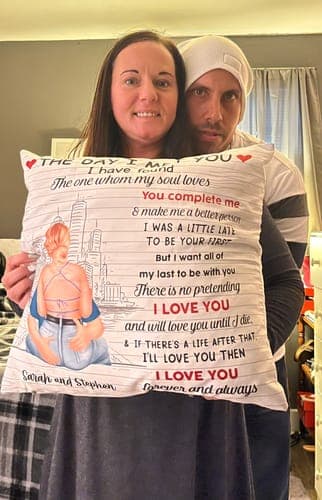 THE DAY I MET YOU
I have found
The one whom my soul loves
You complete me
& make me a better person
I WAS A LITTLE LATE
TO BE YOUR FIRST
But I want all of
my last to be with you
There is no pretending
I LOVE YOU
and will love you until I die,
& IF THERE'S A LIFE AFTER THAT,
I'LL LOVE YOU THEN
I LOVE YOU
forever and always
Sarah and Stephen